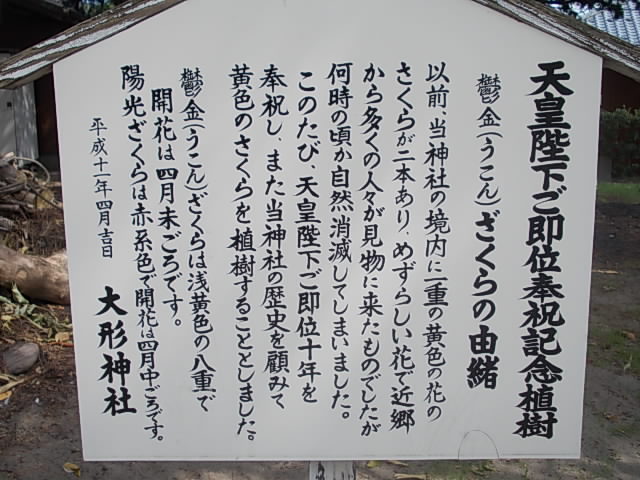 天皇陛下ご即位奉祝記念植樹
鬱金(うこん)ざくらの由緒
以前、当神社の境内に一重の黄色の花の
さくらが二本あり、めずらしい花で近郷
から多くの人々が見物に来たものでしたが
何時の頃か自然消滅してしまいました。
このたび、天皇陛下ご即位十年を
奉祝し、また当神社の歴史を顧みて
黄色のさくらを植樹することとしました。
鬱金(うこん)ざくらは浅黄色の八重で
開花は四月末ごろです。
陽光ざくらは赤系色で開花は四月中ごろです。
平成十一年四月吉日
大形神社